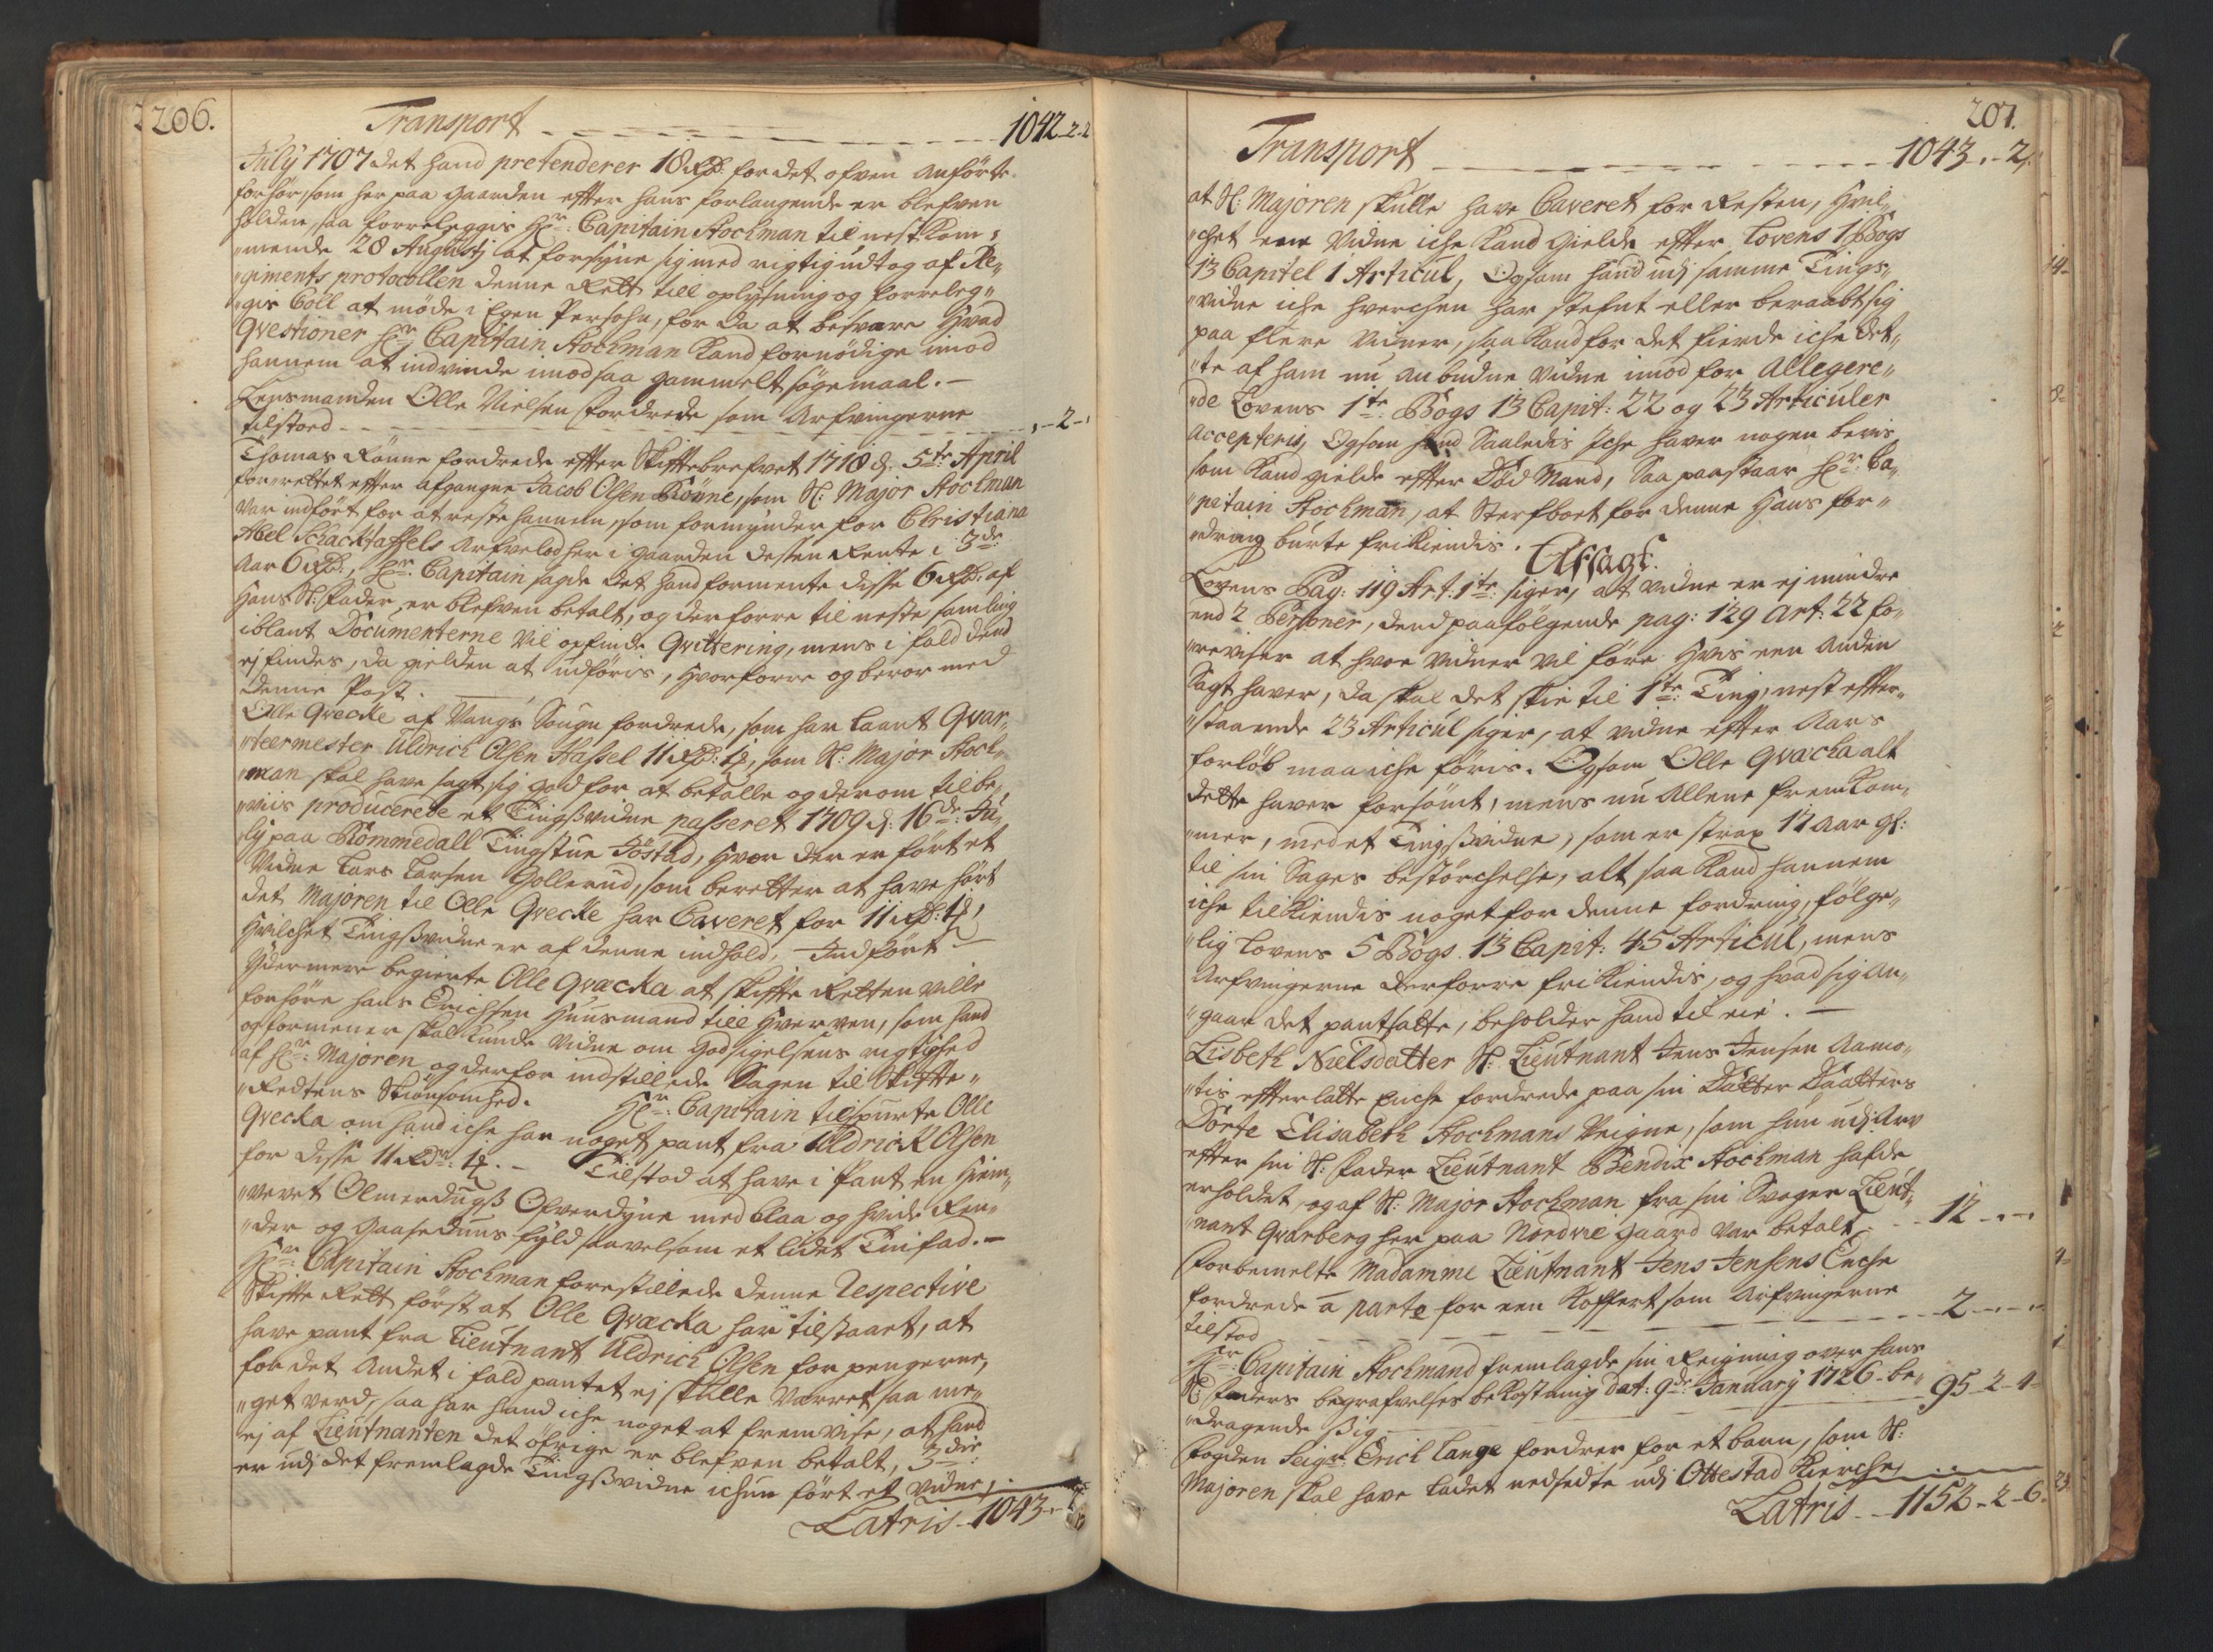 206.
Transport - - - 1042-2-2
July 1707 det hand pretenderer 18 Rd: for det ofven anförte
forhör, som her paa gaarden effter hans forlangende er blefven
holden, saa forreleggis Hr: Capitain Stockman til nestkom-
"mende 28 Augustj at forsyne sig med rigtig udtog af Re-
"giments protocollen denne Rett till oplysning og forreleg-
"gis Coll at möde i Egen Persohn, for da at besvare hvad
Qvestioner Hr: Capitain Stockman kand fornödige imod
hannem at indvinde imod saa gammelt sögemaal.-
Lensmanden Olle Nielsen fordrede som Arfvingerne
tilstoed - - - "-2-"
Thomas Rönne fordrede effter Skifftebrefvet 1718 d: 5te April
forrettet effter afgangne Jacob Olsen Rönne, som Sl: Major Stockman
var indfört for at reste hannem, som formynder for Christiana
Abel Schacktaffels Arfvelod her i gaarden desten Rente i 3de
Aar 6 Rd:, Hr: Capitain sagde det hand formente disse 6 Rd: af
hans Sl: fader er blefven betalt, og derforre til neste samling
iblant Documenterne vil opfinde Qvittering, mens i fald dend
ej findes, da gielden at udföris, hvorforre og beror med
denne Post.
Olle Qvecke af Vangs Sougn fordrede, som har laant Qvar-
"teermester Uldrich Olsen Hassel 11 Rd: 1 , som Sl: Major Stock-
"man skal have sagt sig god for at betalle og derom til be-
"viis producerede et Tingsvidne passeret 1709 d: 16de Ju-
"ly paa Rommedall Tingstue Jöstad, hvor der er fört et
Vidne Lars Larsen Gollerud, som beretter at have hört
det Majoren til Olle Qvecke har Caveret for 11 Rd: 1 ,
hvilchet Tingsvidne er af denne indhold, - Indfört -
Ydermere begierte Olle Qvæcka at skiffte Retten ville
forhöre hans Erichsen huusmand till Hverven, som hand
og formener skal kunde vidne om godsigelsens rigtighed
af Hr: Majoren, og derfor indstillede Sagen til Skiffte-
"Rettens Skiönsomhed. Hr: Capitain tilspurte Olle
Qvecka om hand iche har noget pant fra Uldrick Olsen
for disse 11 Rdr: 1 .- Tilstod at have i Pant en hiem-
"vevet Olmerdugs Ofverdyne med blaa og hvide Ren-
"der og gaasedunns fyld saavelsom et lidet Tinfad.-
Hr: Capitain Stockman forestillede denne respective
Skiffte Rett först at Olle Qvæcka har tilstaaet, at
have pant fra Lieutnant Uldrich Olsen for pengerne,
for det Andet i fald pantet ej skulle varret saa me-
"get verd, saa har hand iche noget at fremvise, at hand
ej af Lieutnanten det öfrige er blefven betalt, 3die
er udj det fremlagde Tingsvidne ichun fört et vidne,
Latris - 1043-
207.
Transport - - - 1043.-2.
at Sl: Majoren skulle have Caveret for Resten, hvil-
"chet eene vidne iche kand gielde effter Lovens 1 Bogs
13 Capitel 1 Articul, Ogsom hand udj samme Tings-
"vidne iche hverchen har stefnt eller beraabt sig
paa flere vidner, saa kand for det fierde iche det-
"te af ham nu anbudne vidne imod for allegere-
"de Lovens 1te Bogs 13 Capit: 22 og 23 Articuler
accepteris, Ogsom hand Saaledis Iche haver nogen beviis
som kand gielde effter Död Mand, Saa paastaar Hr: Ca-
"pitain Stockman, at Sterfboet for denne hans for-
"dring burte frikiendis. Afsagt.
Lovens Pag: 119 Art: 1te: siger, at vidne er ej mindre
end 2 Personer, dend paafölgende pag: 129 Art: 22 fo-
"reviser at hvor vidner vil före hvis een anden
Sagt haver, da skal det skie til 1te: Ting, nest effter-
"staaende 23 Articul siger, at vidne effter Aars
forlöb maa iche föris. Ogsom Olle Qvæcka alt
dette haver forsömt, mens nu allene fremkom-
"mer, med et Tingsvidne, som er strax 17 Aar gl:
til sin Sages bestörchelse, alt saa kand hannem
iche tilkiendis noget for denne fordring, fölge-
"lig Lovens 5 Bogs 13 Capit: 45 Articul, mens
Arfvingerne derforre frikiendis, og hvad sig an-
"gaar det pantsatte, beholder hand til eie. -
Lisbeth Nielsdatter Sl: Lieutnant Jens Jensen Aamo-
"tis effterlatte Enche fordrede paa sin Datter Daatters
Dorte Elisabeth Stockmans Veigne, som hun udj Arv
effter sin Sl: fader Lieutnant Bendix Stockman hafde
erholdet, og af Sl: Major Stockman fra sin Svoger Lieut-
"nant Qvarberg her paa Nordvie gaard var betalt - - 12 - - -
Forbemelte Madamme Lieutnant Jens Jensens Enche
fordrede a parte for een Koffert som Arfvingerne
tilstod - - - 2 - - -
Hr: Capitain Stockmand fremlagde sin Reigning over hans
Sl: faders begrafvelses bekostning dat: 9de January 1726 - be-
"dragende sig - - - 95-2-4
Fogden Seigr: Erich Lange fordrer for et barn, som Sl:
Majoren skal have ladet nedsedte udj Ottestad Kierche, - - -
Latris - - 1152-2-6